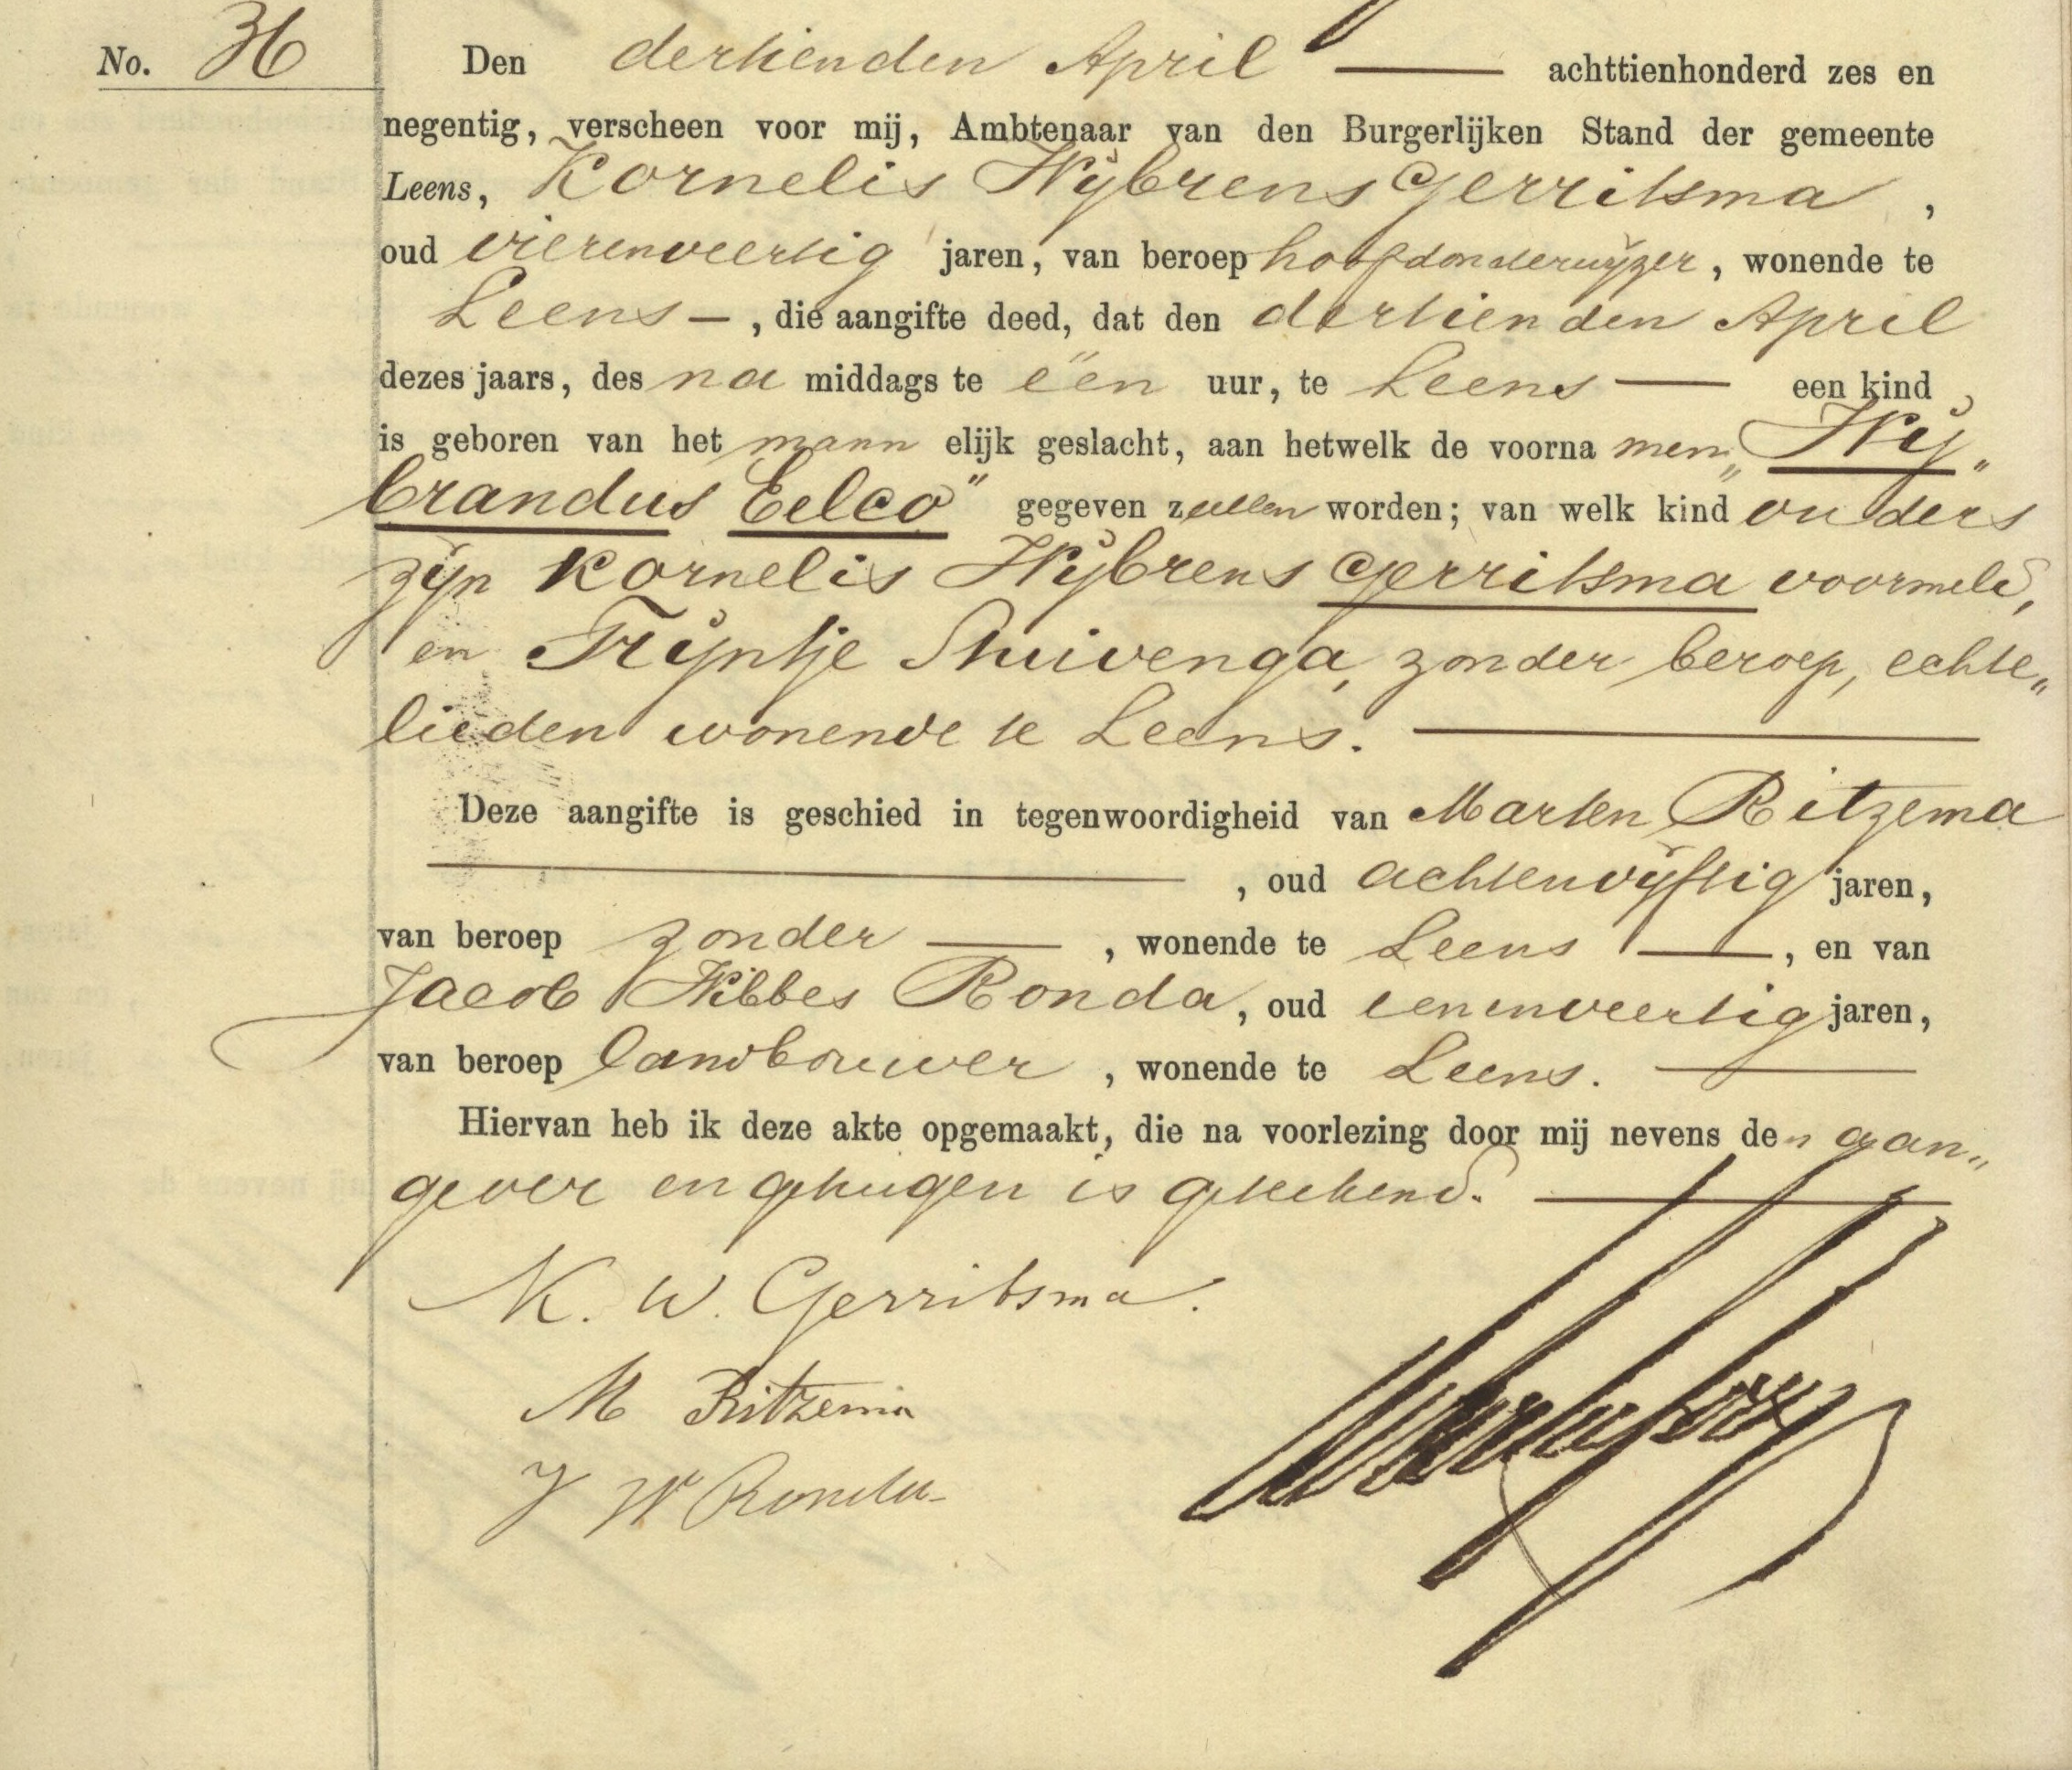 No. 36 Den dertienden April — achttienhonderd zes en
negentig, verscheen voor mij, Ambtenaar van den Burgerlijken Stand der gemeente
Leens, Kornelis Wijbrens Gerritsma ,
oud vierenveertig jaren, van beroep hoofdonderwijzer, wonende te
Leens — , die aangifte deed, dat den dertienden April
dezes jaars, des na middags te één uur, te Leens — een kind
is geboren van het mann elijk geslacht, aan hetwelk de voorna men „Wij„
brandus Eelco" gegeven zullen worden; van welk kind ouders
zijn Kornelis Wijbrens Gerritsma voormeld,
en Trijntje Stuivenga, zonder beroep, echte„
lieden wonende te Leens. —
Deze aangifte is geschied in tegenwoordigheid van Marten Ritzema
— , oud achtenvijftig jaren,
van beroep zonder — , wonende te Leens — , en van
Jacob Wibbes Ronda, oud eenenveertig jaren,
van beroep landbouwer , wonende te Leens. —
Hiervan heb ik deze akte opgemaakt, die na voorlezing door mij nevens den aan„
gever en getuigen is geteekend. —
K. W. Gerritsma.
M Ritzema
J W Ronda